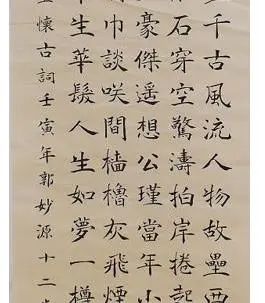 千古風流人物故壘西
石穿空驚濤拍岸捲起
豪傑遥想公瑾當年小
巾談咲間檣櫓灰飛煙
生華髮人生如夢一樽
懷古詞壬寅年郭妙源十二